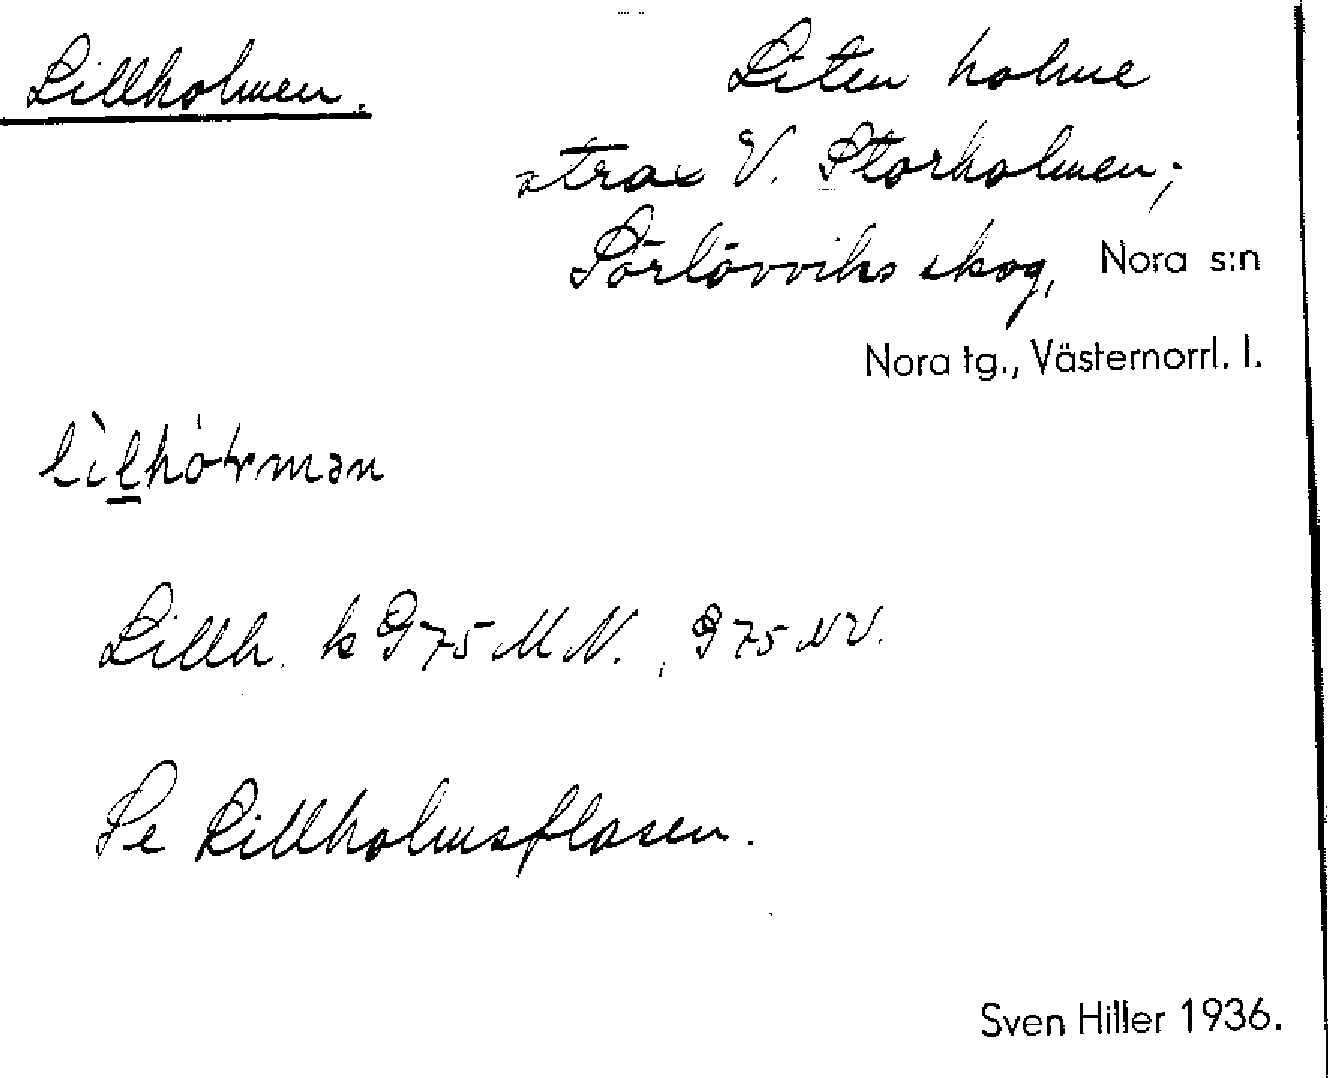 Lillholmen.
Liten holme
strax V. Storholmen;
Sörlövviks skog, Nora s:n
Nora tg., Västernorrl. l.
Lillh. k 975 M N., 975 NV.
Se Lillholmsflasen.
Sven Hiller 1936.